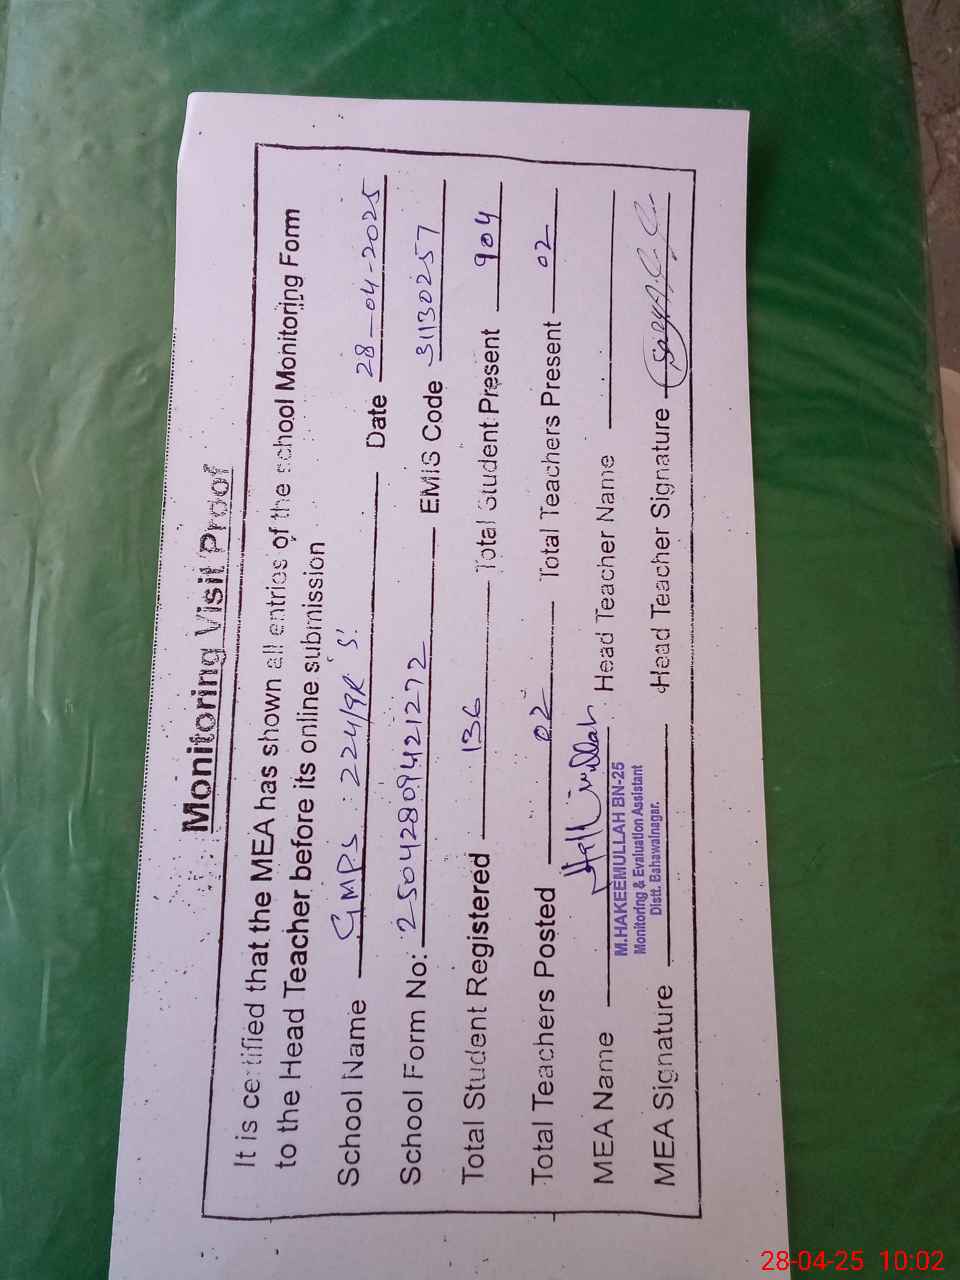 Monitoring Visit Proof
It is certified that the MEA has shown all entries of the school Monitoring Form
to the Head Teacher before its online submission
School Name GMPS: 224/9R Date 28-04-2025
School Form No: 25042809421272 EMIS Code 31130257
Total Student Registered 136 Total Student Present 904
Total Teachers Posted 02 Total Teachers Present 02
MEA Name Head Teacher Name
M.HAKEEMULLAH BN-25
Monitoring & Evaluation Assistant
Distt. Bahawalnagar.
MEA Signature Head Teacher Signature
28-04-25 10:02